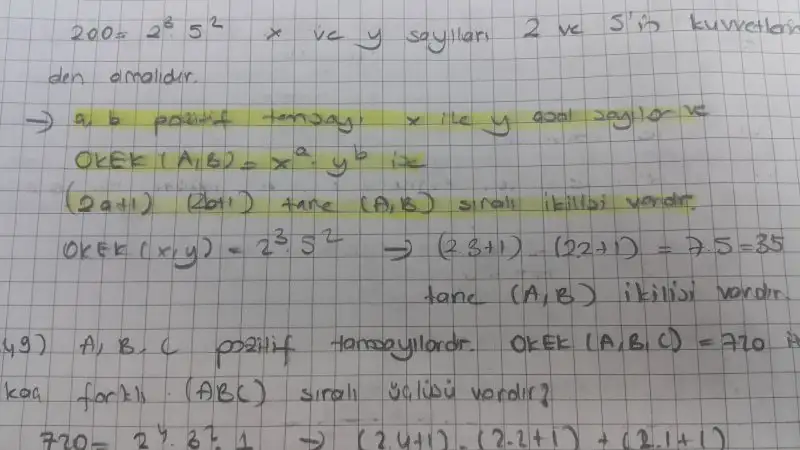 200= 2³ 5² x ve y sayıları 2 ve 5'in kuvvetlerin
den olmalıdır.
→ a, b pozitif tamsayı x ile y asal sayılar ve
OKEK (A,B) = xᵃ. yᵇ ise
(2a+1) (2b+1) tane (A,B) sıralı ikilisi vardır.
OKEK (x,y) = 2³.5² → (2.3+1) . (2.2+1) = 7.5=35
tane (A,B) ikilisi vardır.
49) A, B, C pozitif tamsayılardır. OKEK (A,B,C) = 720 i
kaç farklı (ABC) sıralı üçlüsü vardır?
720= 2⁴. 3². 1 → (2.4+1) . (2.2+1) + (2.1+1)